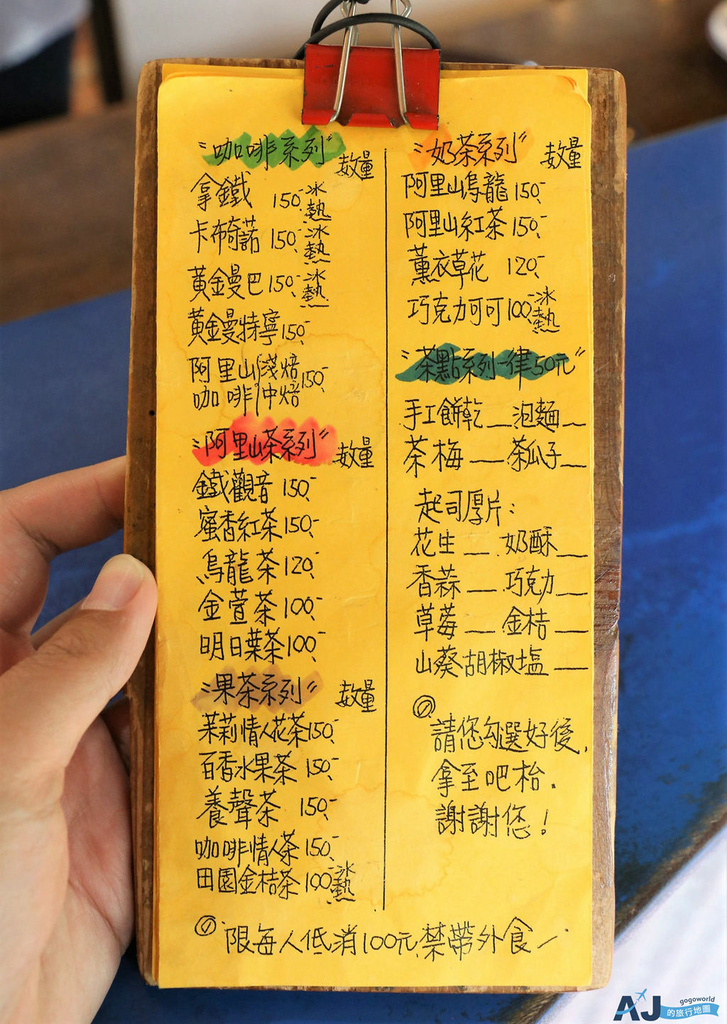 "咖啡系列" 数量
拿鐵 150.- 冰熱
卡布奇諾 150.- 冰熱
黃金曼巴 150.- 冰熱
黃金曼特寧 150.-
阿里山淺焙
咖啡中焙 150.-
"阿里山茶系列" 数量
鐵觀音 150.-
蜜香紅茶 150.-
烏龍茶 120.-
金萱茶 100.-
明日葉茶 100.-
"果茶系列" 数量
茉莉情人花茶 150.-
百香水果茶 150.-
養聲茶 150.-
咖啡情人茶 150.-
田園金桔茶 100.- 冰熱
"奶茶系列" 数量
阿里山烏龍 150.-
阿里山紅茶 150.-
薰衣草花 120.-
巧克力可可 100.- 冰熱
"茶點系列一律50元"
手工餅乾__泡麵__
茶梅__茶瓜子__
起司厚片:
花生__奶酥__
香蒜__巧克力__
草莓__金桔__
山葵胡椒塩__
請您勾選好後,
拿至吧枱.
謝謝您!
限每人低消100元,禁帶外食一
AJ gogoworld
的旅行地圖